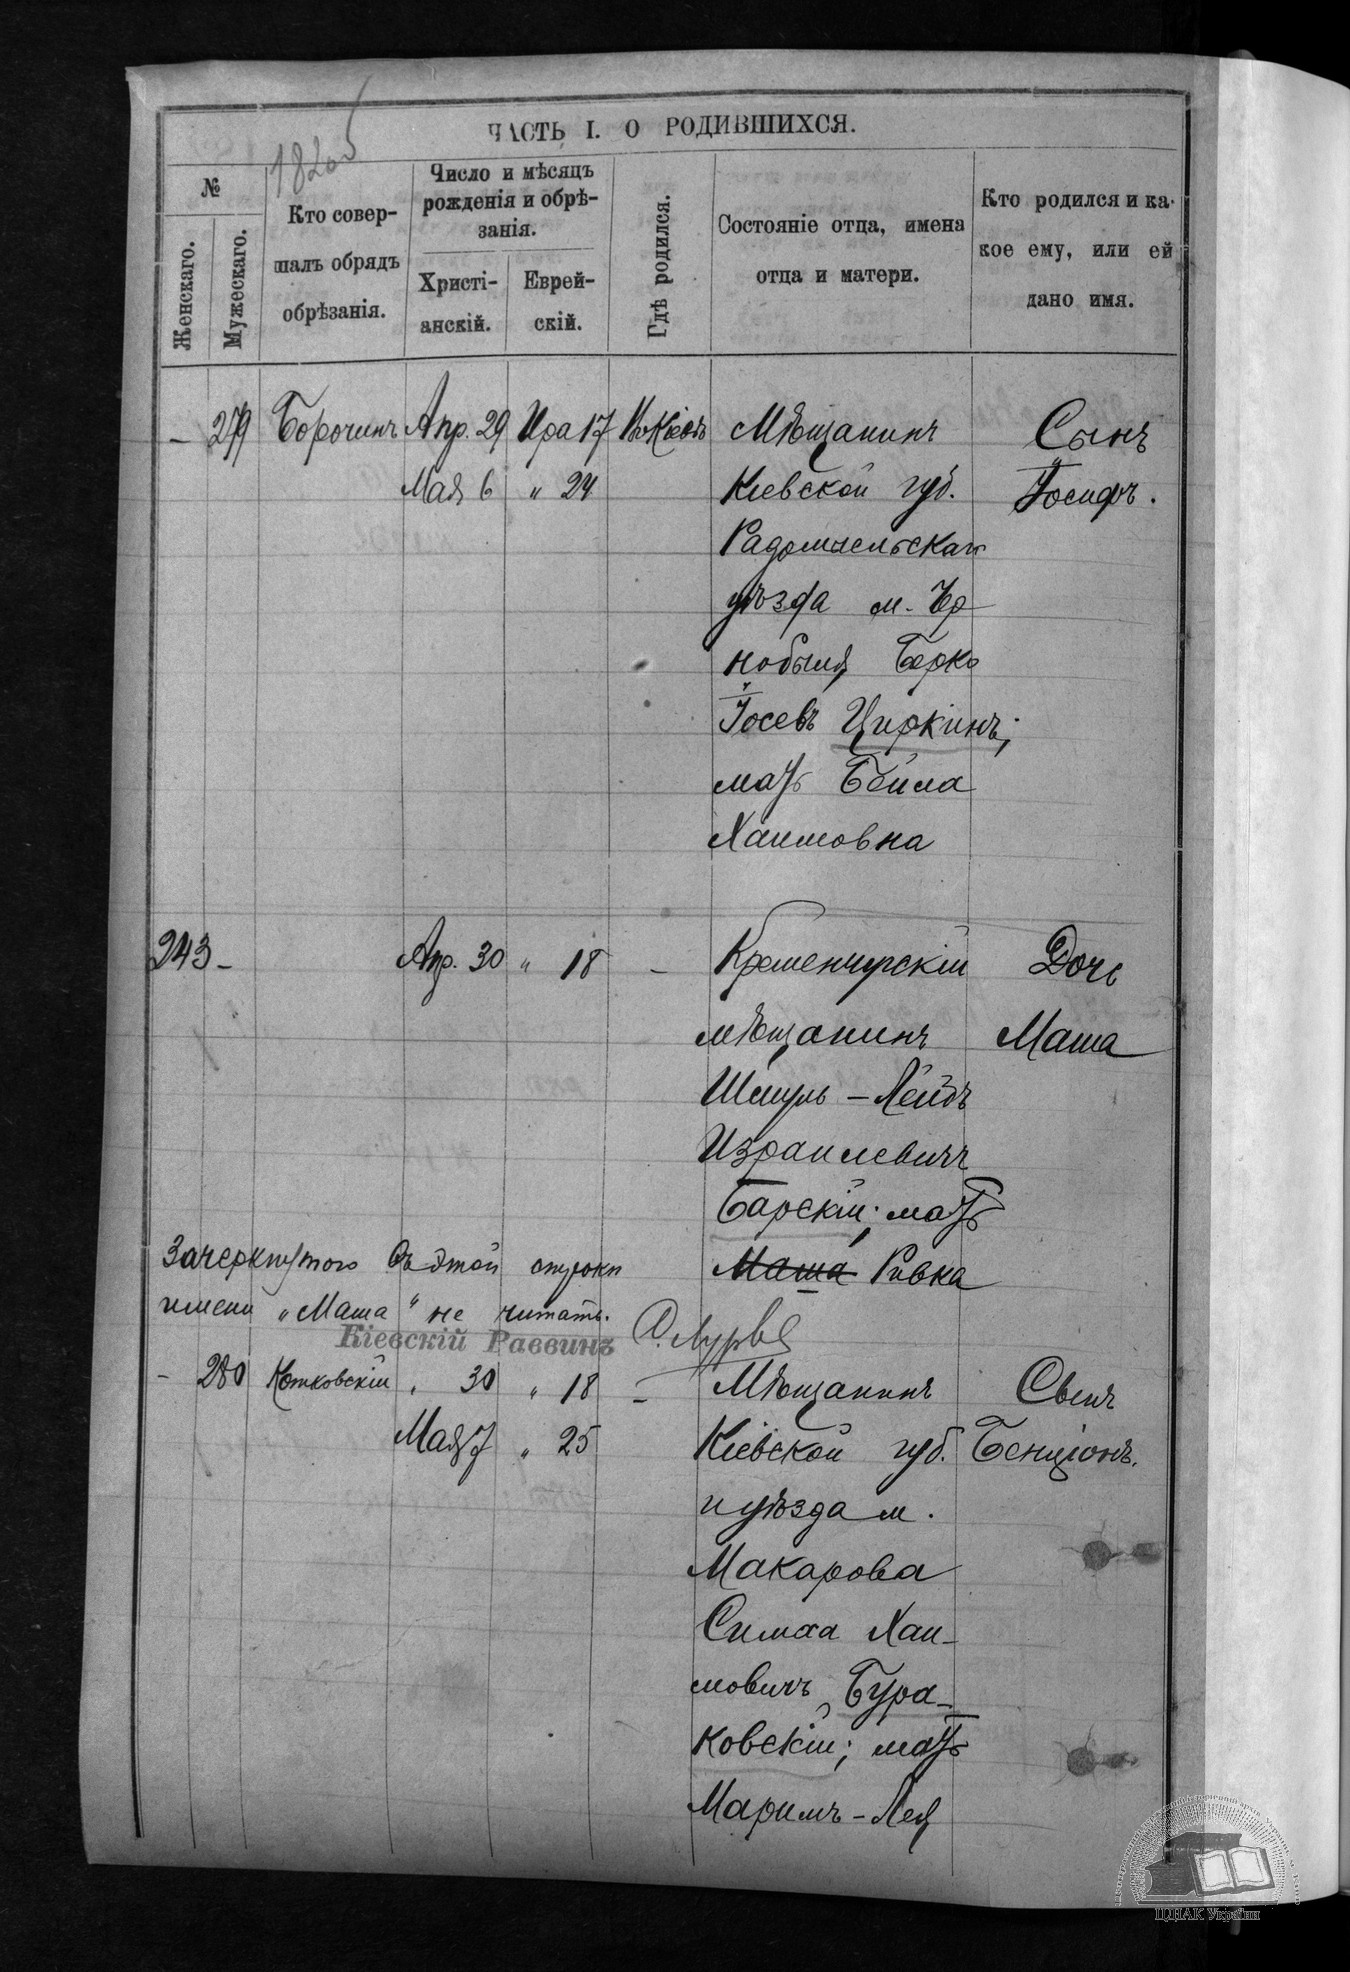 ЧАСТЬ I. О РОДИВШИХСЯ.
18205
№
Женскаго.
Мужескаго.
Кто совер-
шалъ обрядъ
обрѣзанія.
Число и мѣсяцъ
рожденія и обрѣ-
занія.
Христі-
анскій.
Еврей-
скій.
Гдѣ родился.
Состояніе отца, имена
отца и матери.
Кто родился и ка-
кое ему, или ей
дано имя.
– 279 Борочинъ Апр. 29 Ира 17 Въ Кіевѣ Мѣщанинъ Сынъ
Мая 6 " 24 Кіевской губ. Іосифъ.
Радомысльскаго
уѣзда м. Чер
нобыля, Берко
Іосевъ Циркинъ;
мать Бейла
Хаимовна
243 – Апр. 30 " 18 – Кременчугскій Дочь
мѣщанинъ Маша
Шмуль – Лейбъ
Израилевичъ
Барскій; мать
Маша Ривка
Зачеркнутого въ этой строки
имени „Маша" не читать.
Кіевскій Раввинъ
– 280 Котковскій " 30 " 18 – Мѣщанинъ Сынъ
Мая 7 " 25 Кіевской губ. Бенціонъ.
и уѣзда м.
Макарова
Симха Хаи-
мовичъ Бура-
ковскій; мать
Маримъ – Лея
ЦДІАК України